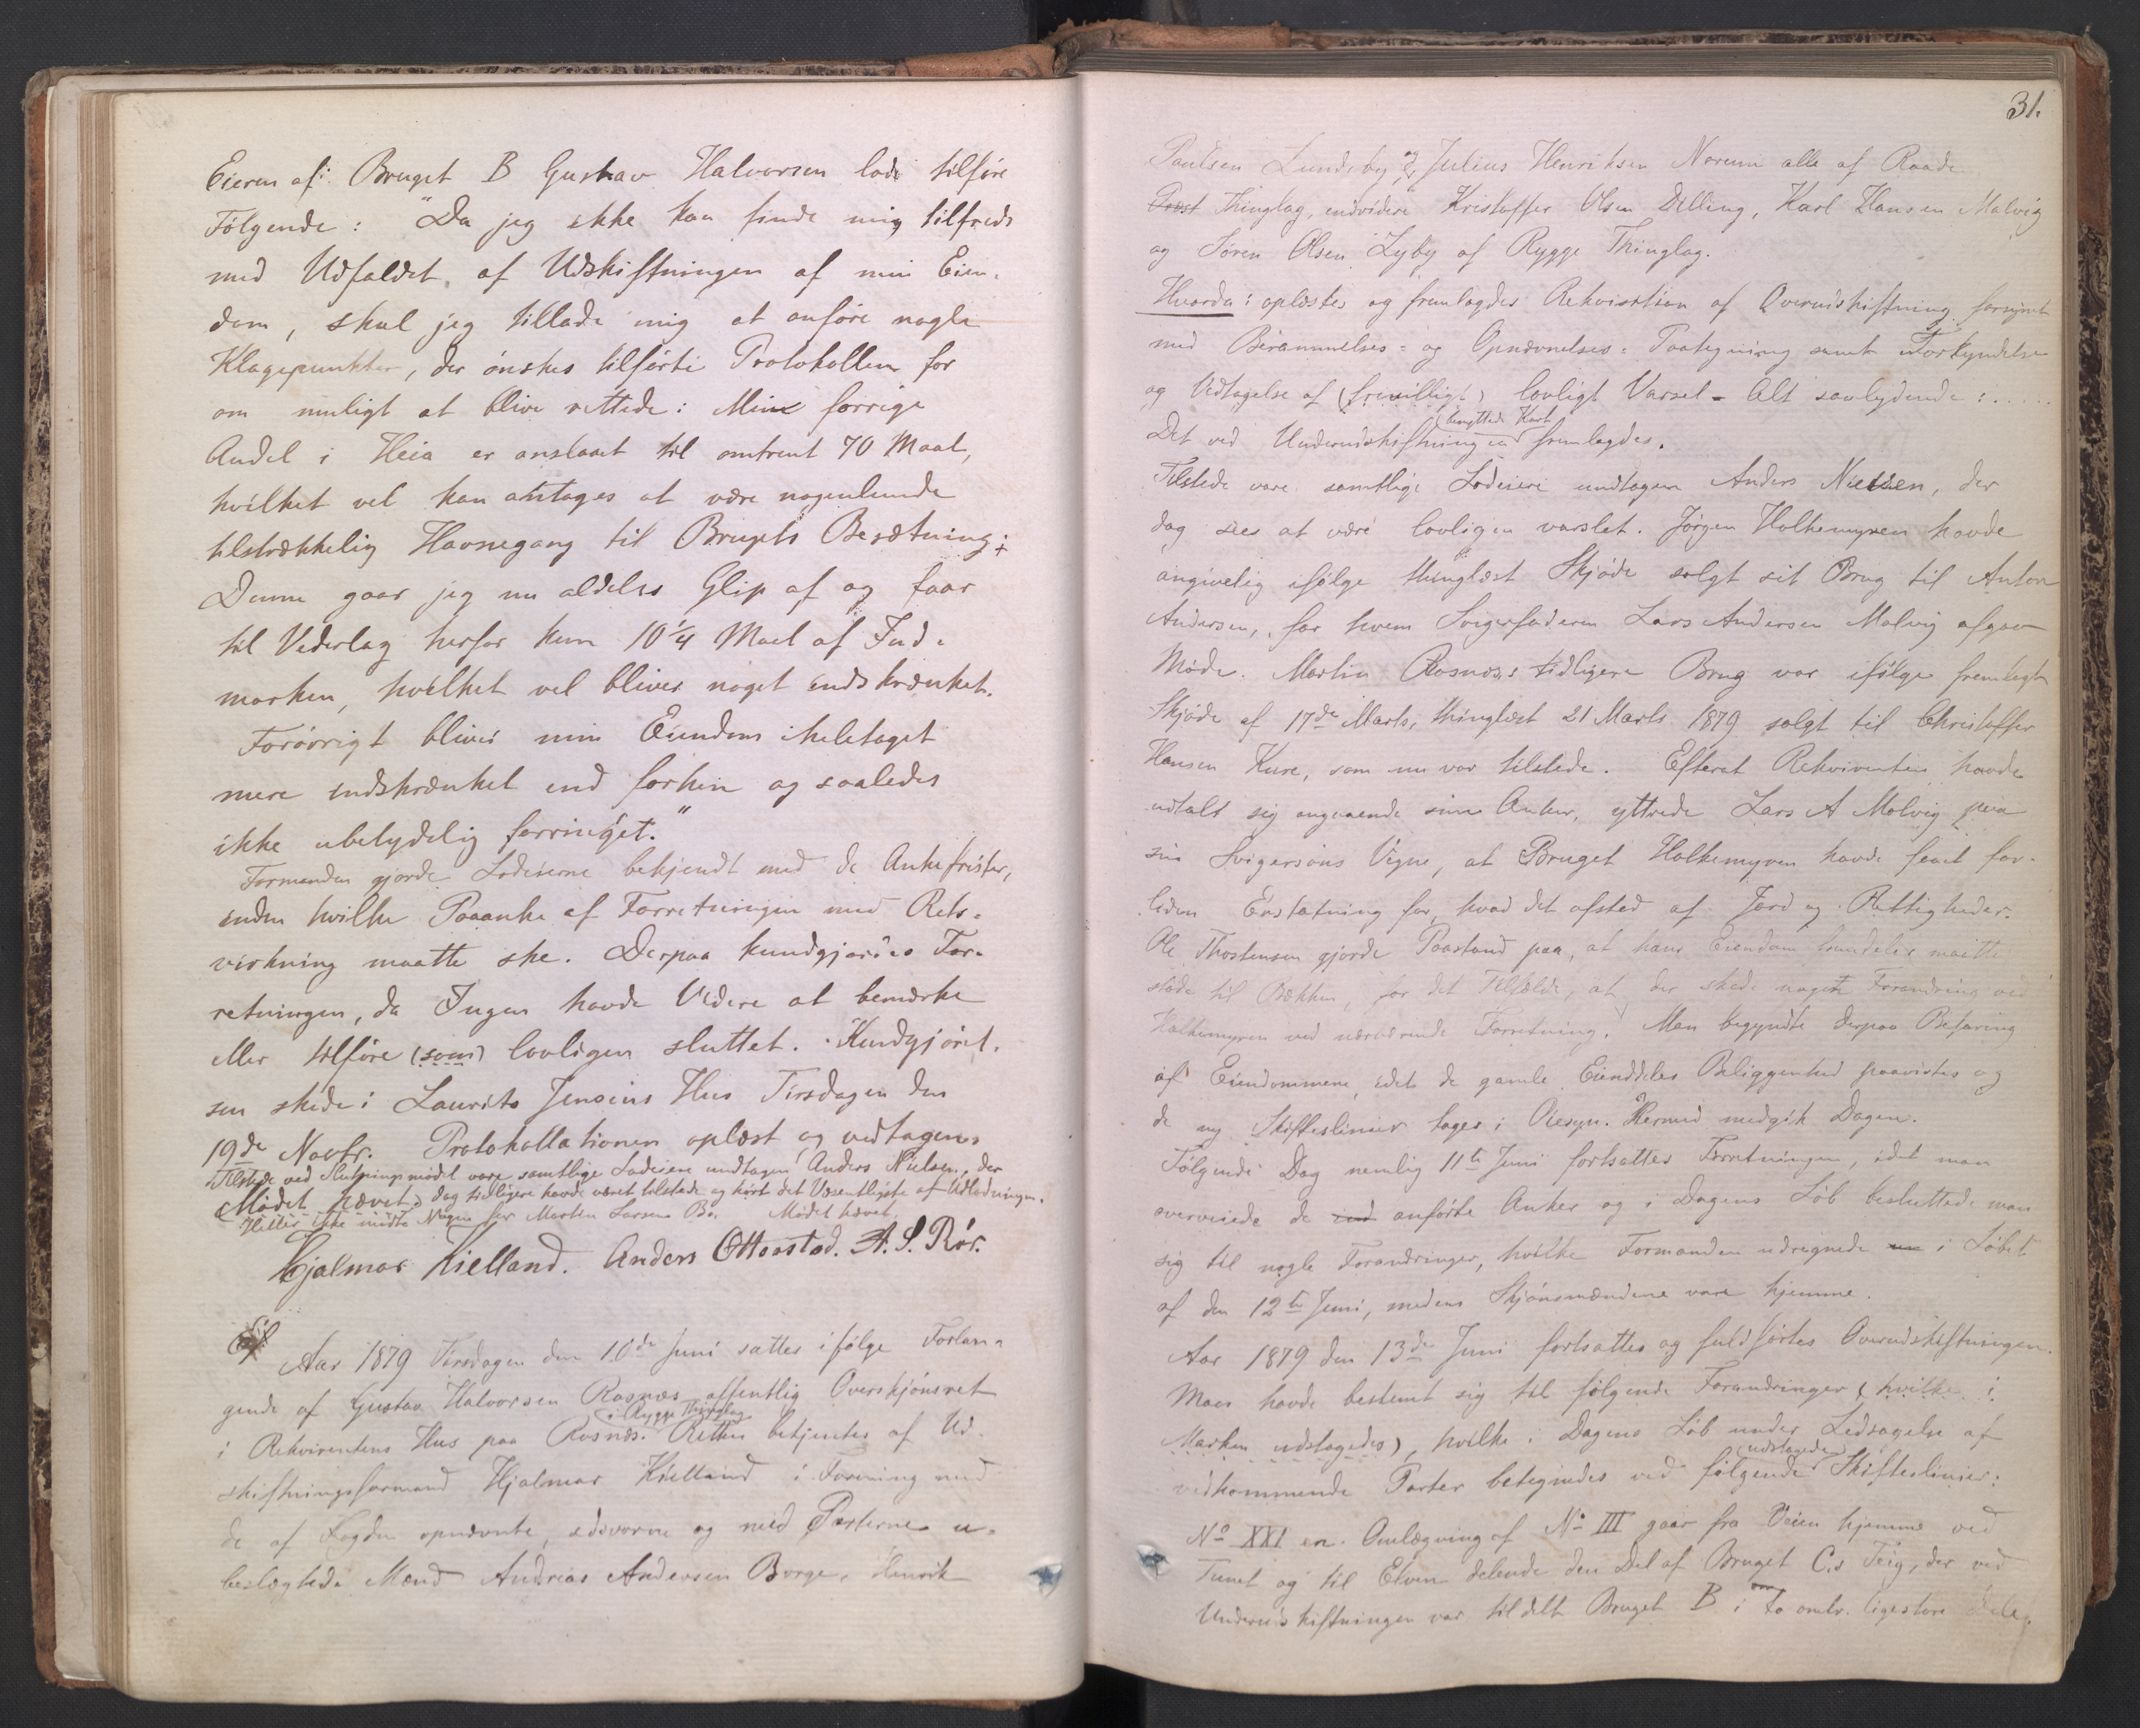 Eieren af Bruget B Gustav Halvorsen lod tilføre
Følgende: "Da jeg ikke kan finde mig tilfreds
med Udfaldet af Udskiftningen af min Eien-
dom, skal jeg tillade mig at anføre nogle
Klagepunkter, der ønskes tilførte Protokollen for
om muligt at blive rettede: Min forrige
Andel i Heia er anslaaet til omtrent 70 Maal,
hvilket vel kan antages at være nogenlunde
tilstrækkelig Havnegang til Brugets Besætning;
Denne gaar jeg nu aldeles Glip af og faar
til Vederlag herfor kun 10 1/4 Maal af Ind-
marken, hvilket vel bliver noget indskrænket.
Forøvrigt bliver min Eiendom i heletaget
mere indskrænket end forhen og saaledes
ikke ubetydelig forringet."
Formanden gjorde Lodeierne bekjendt med de Ankefrister,
inden hvilke Paaanke af Forretningen med Rets-
virkning maatte ske. Derpaa kundgjordes For-
retningen, da Ingen havde Videre at bemærke
eller tilføre (som) lovligen sluttet. Kundgjørel-
sen skede i Laurits Jensens Hus Tirsdagen den
19de Novbr. Protokollationen oplæst og vedtagen.
Tilstede ved Slutningsmødet vare samtlige Lodeiere undtagen Anders Nielsen, der
(Mødet hævet) dog tidligere havde været tilstede og hørt det Væsentligste af Udlodningen.
Heller ikke mødte Nogen for Martin Larsens Bo. Mødet hævet.
Hjalmar Kielland. Anders Ottarstad. A. S. Rør.
Aar 1879 Tirsdagen den 10de Juni sattes ifølge Forlan-
gende af Gustav Halvorsen Rosnæs offentlig Overskjønsret
i Rekvirentens Hus paa Rosnæs i Rygge Thinglag. Retten betjentes af Ud-
skiftningsformand Hjalmar Kielland i Forening med
de af Fogden opnævnte, edsvorne og med Parterne u-
beslægtede Mænd Andreas Andersen Borge, Henrik
31.
Paulsen Lundeby, og Julius Henriksen Norum alle af Raade
Thinglag, endvidere Kristoffer Olsen Dilling, Karl Hansen Malvig
og Søren Olsen Lyby af Rygge Thinglag.
Hvorda: oplæstes og fremlagdes Rekvisition af Overudskiftning forsynet
med Berammelses- og Opnævnelses-Paategning samt Forkyndelse
og Vedtagelse af (frivilligt) lovligt Varsel - Alt saalydende: .....
Det ved Underudskiftningen benyttede Kart fremlagdes.
Tilstede vare samtlige Lodeiere undtagen Anders Nielsen, der
dog sees at være lovligen varslet. Jørgen Holkemyren havde
angivelig ifølge thinglæst Skjøde solgt sit Brug til Anton
Andersen, for hvem Svigerfaderen Lars Andersen Malvig afgav
Møde. Martin Rosnæs's tidligere Brug var ifølge fremlagt
Skjøde af 17de Marts, thinglæst 21 Marts 1879 solgt til Christoffer
Hansen Kure, som nu var tilstede. Efterat Rekvirenten havde
udtalt sig angaaende sine Anker, yttrede Lars A Malvig paa
sin Svigersøns Vegne, at Bruget Holkemyren havde faaet for-
liden Erstatning for, hvad det afsted af Jord og Rettigheder.
Ole Thostensen gjorde Paastand paa, at hans Eiendom fremdeles maatte
støde til Bækken, for det Tilfælde, at der skede nogen Forandring ved
Holkemyren ved nærværende Forretning. Man begyndte derpaa Befaring
af Eiendommene, idet de gamle Eienddeles Beliggenhed paavistes og
de ny Skifteslinier toges i Øiesyn. Hermed medgik Dagen.
Følgende Dag nemlig 11te Juni fortsattes Forretningen, idet man
overveiede de anførte Anker og i Dagens Løb besluttede man
sig til nogle Forandringer, hvilke Formanden udregnede i Løbet
af den 12te Juni, medens Skjønsmændene vare hjemme.
Aar 1879 den 13de Juni fortsattes og fuldførtes Overudskiftningen.
Man havde bestemt sig til følgende Forandringer (hvilke i
Marken udstagedes), hvilke i Dagens Løb under Ledsagelse af
vedkommende Parter betegnedes ved følgende (udstagede) Skifteslinier:
No XXI en Omlægning af No III gaar fra Veien hjemme ved
Tunet og til Elven delende den Del af Bruget C.s Teig, der ved
Underudskiftningen var tildelt Bruget B i to omtr. ligestore Dele,